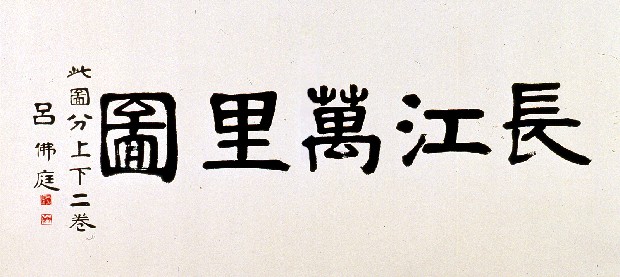 長江萬里圖
此圖分上下二卷
呂佛庭